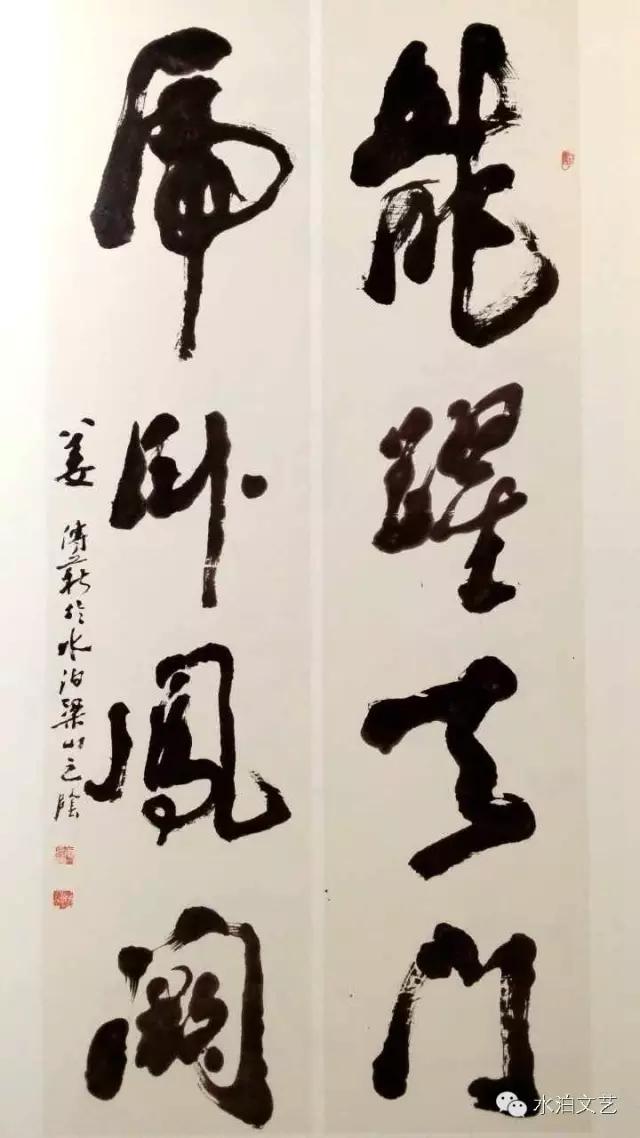 龍躍天門
虎卧鳳闕
姜傳薪於水泊梁山之陰
水泊文艺